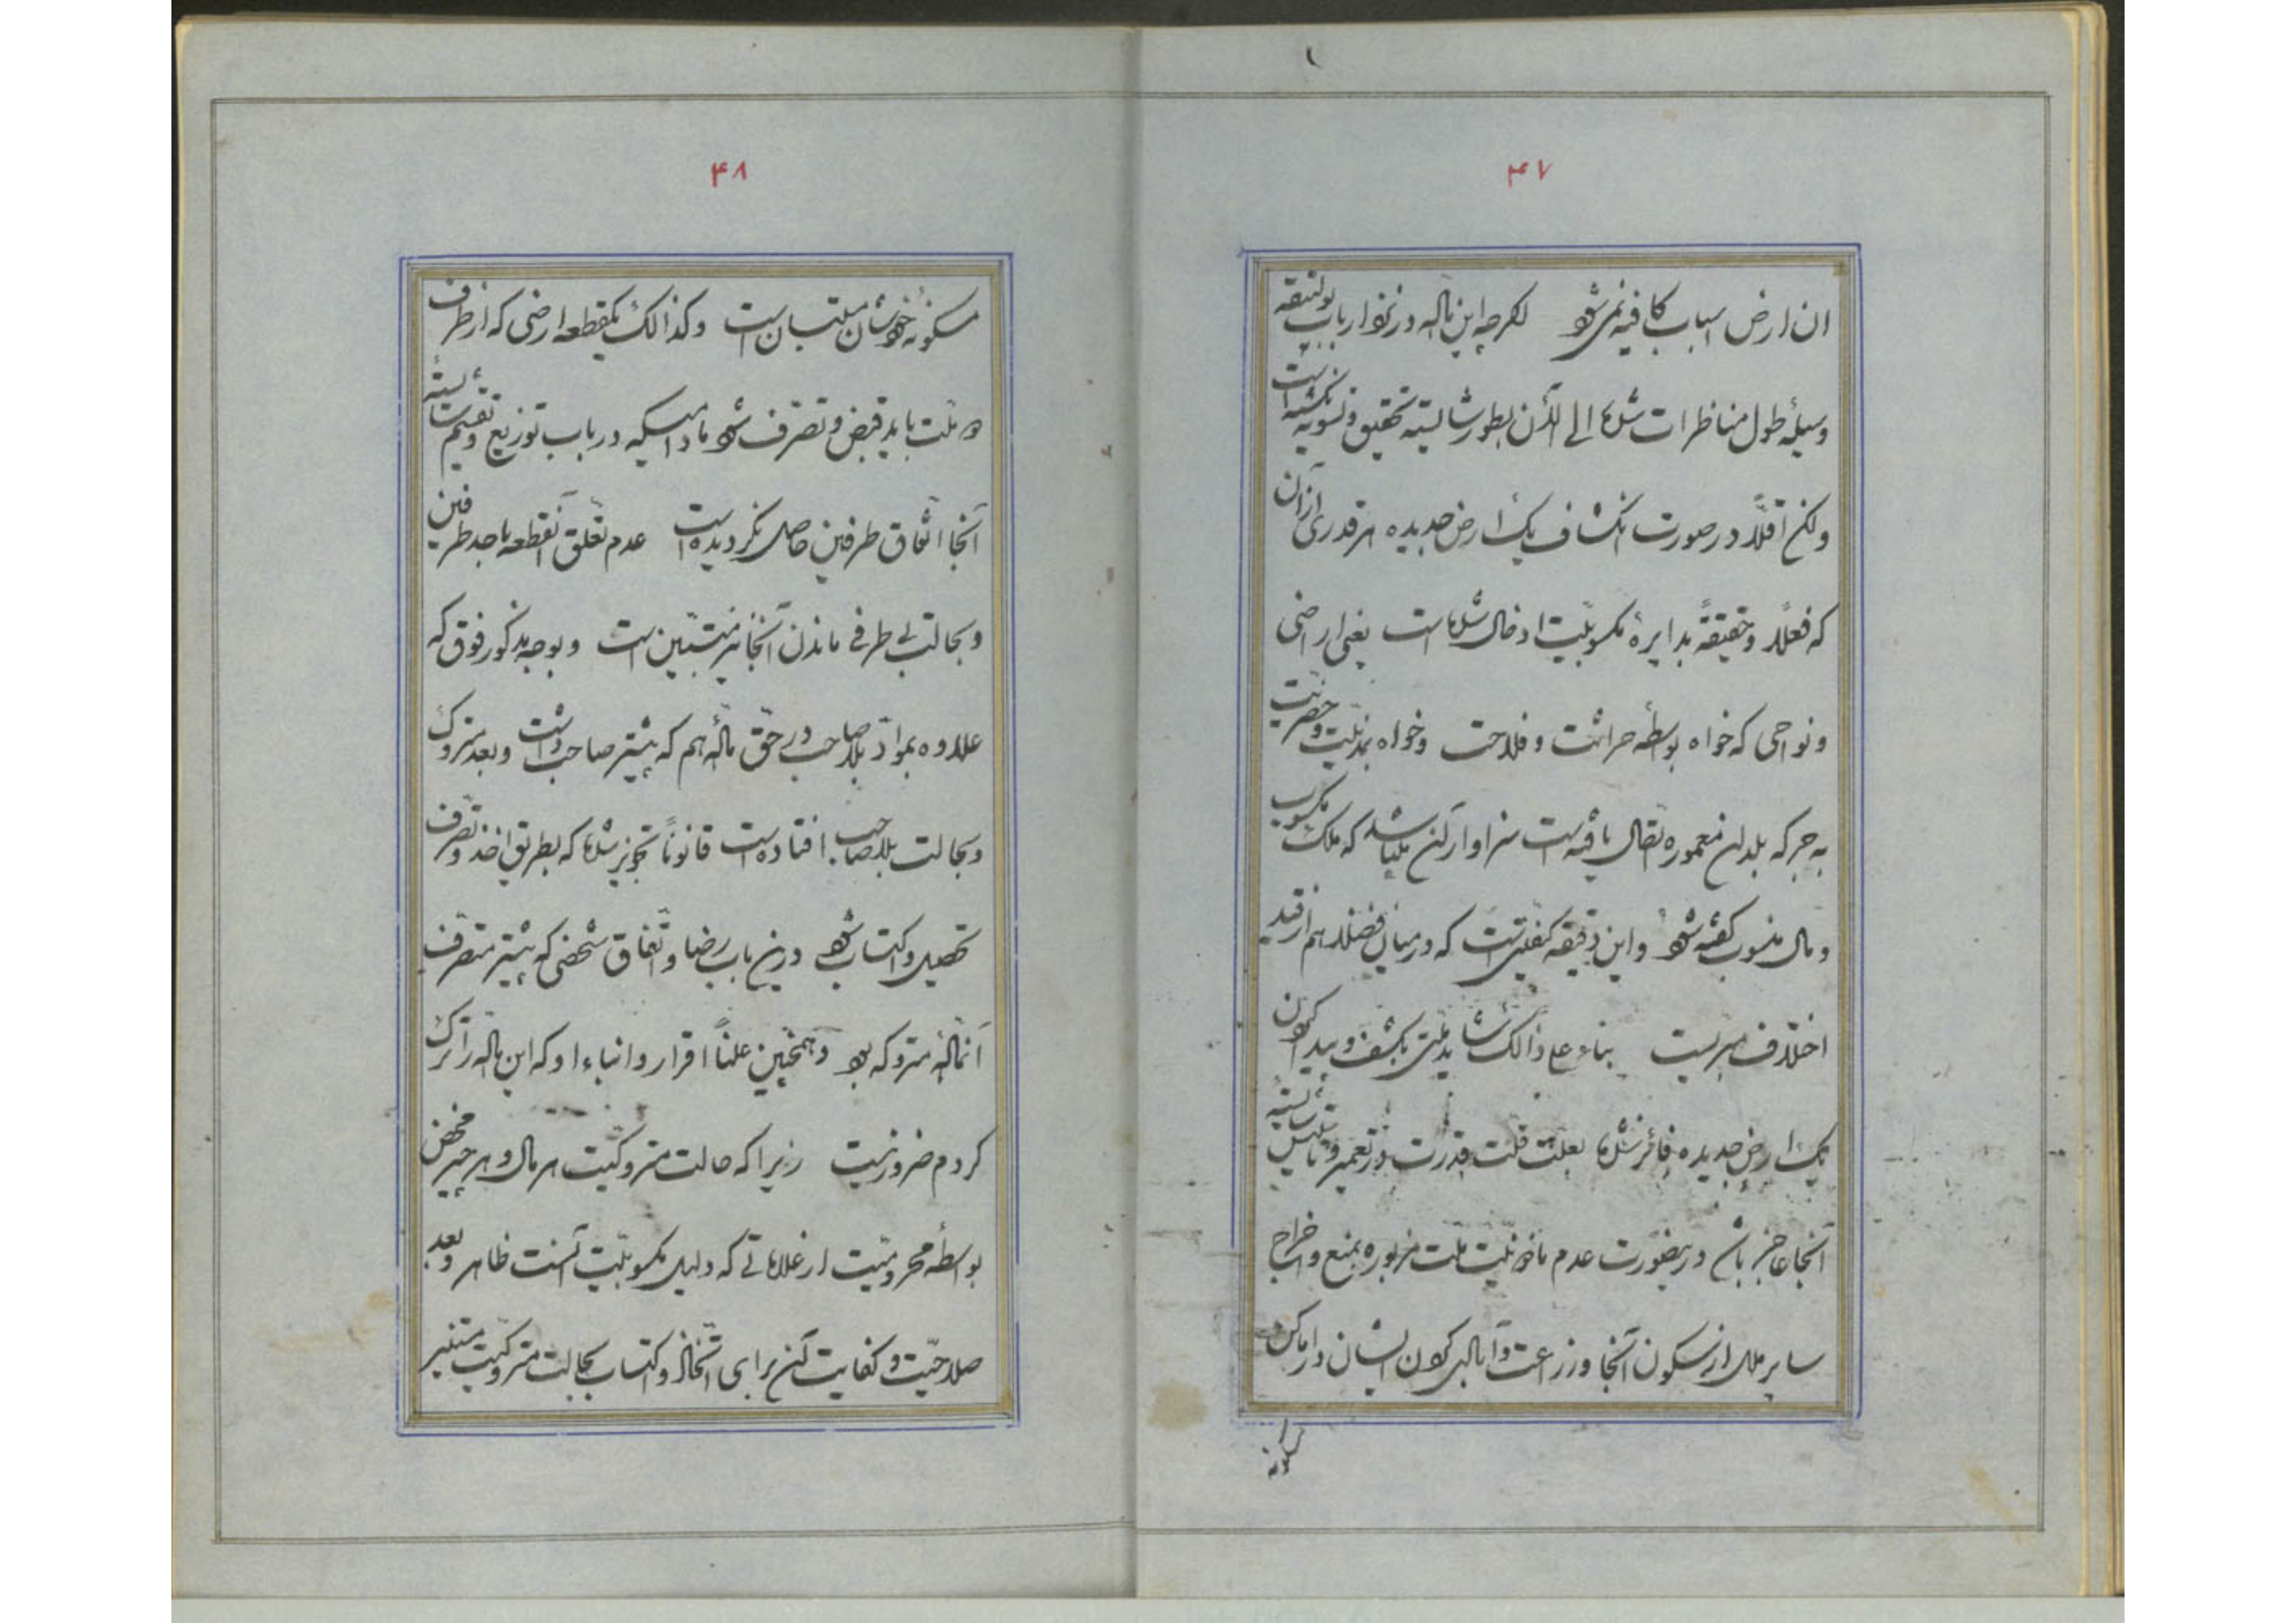 ۴۷
ان ارض اسباب کافیه نمی‌شود اگرچه این ماله در نزد ارباب بولتیقه
وسیلهٔ طول مناظرات شده الی الآن بطور شایسته تحقیق و تسویه نگشته است
ولکن اقلّاً در صورت انکشاف یک ارض جدیده هر قدری از آن
که فعلاً و حقیقةً بدایرهٔ مکسوبیّت ادخال شده است یعنی اراضی
و نواحی که خواه بواسطهٔ حراثت و فلاحت و خواه بمدنیّت و حضریّت
به جرکه بلدان معموره اتصال یافته است سزاوار آن میباشد که ملک مکسوب
و مال منسوب گفته شود و این دقیقه کیفیتی است که در میان فضلا هم از قید
اختلاف بریست بناء علی ذالک شاید ملتی بکشف و پیدا کردن
یک ارض جدیده فائز شده بعلت قلت قدرت در تعمیر و تأسیس شایستهٔ
آنجا عاجز باشد درینصورت عدم مأذونیّت ملت مزبوره بمنع و اخراج
سایر ملل از سکون آنجا و زراعت و آباد کردن ایشان در اماکن
مسکونه
۴۸
مسکونهٔ خودشان ملتبسان است وکذالک یکقطعه ارضی که از طرف
دو ملت باید قبض و تصرّف شود مادامیکه در باب توزیع و تقسیم شایستهٔ
آنجا اتّفاق طرفین حاصل نگردیده است عدم تعلّق آنقطعه باحد طرفین
و بحالت بی طرفی ماندن آنجا نیز متبیّن است و بوجه مذکور فوق که
علاوه بموادّ بلاصاحب در حقّ مالهٔ هم که پیشتر صاحب داشت و بعد متروک
و بحالت بلاصاحب افتاده است قانوناً تجویز شده که بطریق اخذ و تصرّف
تحصیل و اکتساب شود درین باب رضا و اتّفاق شخصی که پیشتر متصرف
آنمالهٔ متروکه بود و همچنین علناً اقرار و انباء او که این ماله را ترک
کردم ضرور نیست زیرا که حالت متروکیّت هر مال و هر چیز محض
بواسطهٔ محرومیّت از علاماتی که دلیل مکسوبیّت آنست ظاهر و بعد
صلاحیّت و کفایت آن برای اتّخاذ و اکتساب بحالت متروکیّت متغیر